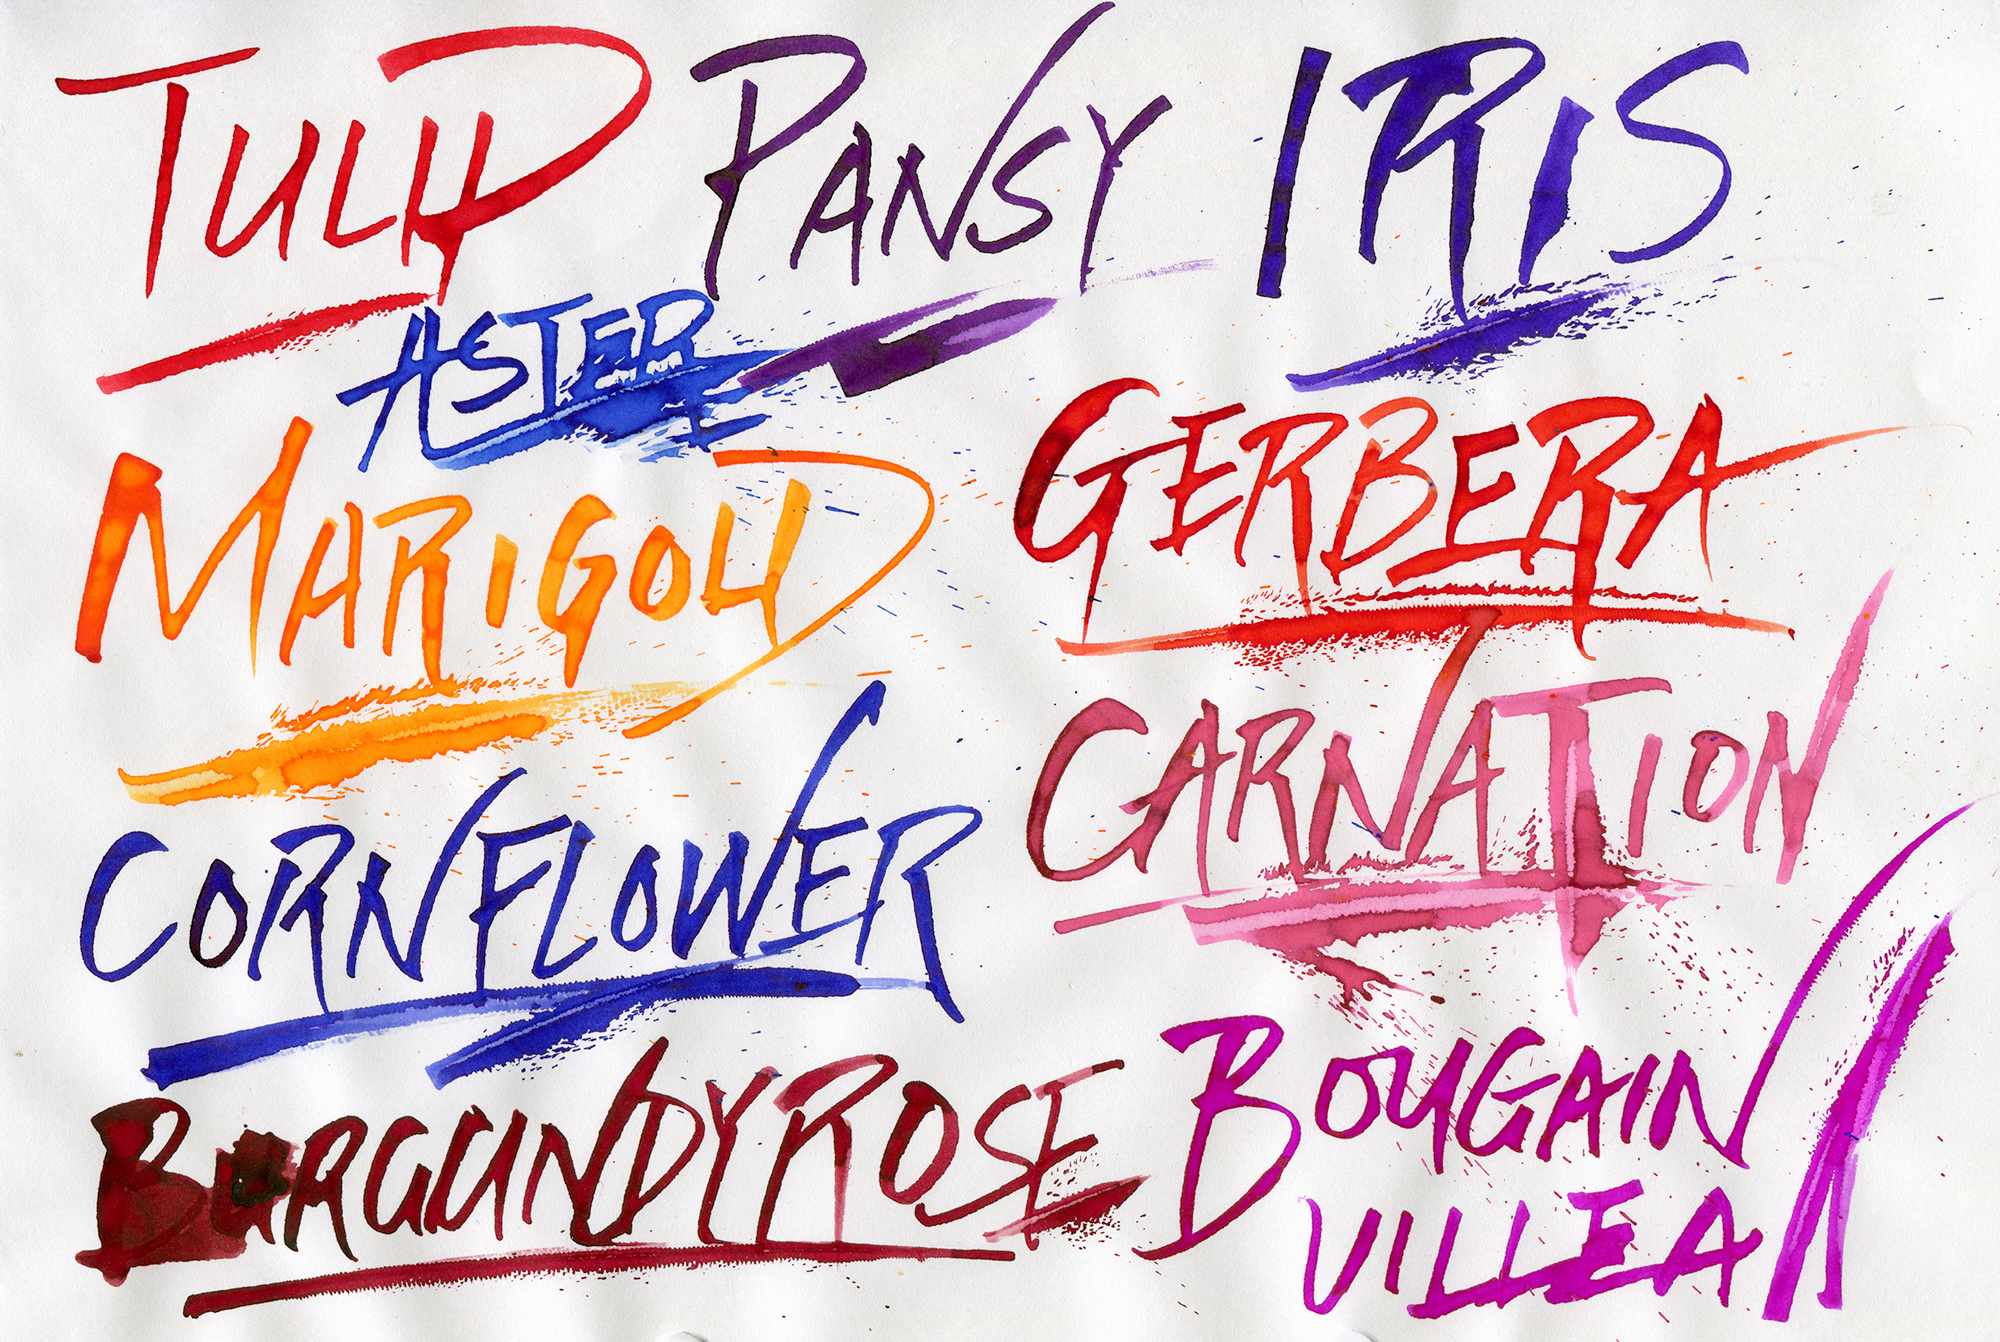 TULIP PANSY IRIS
ASTER
MARIGOLD GERBERA
CORNFLOWER CARNATION
BURGUNDY ROSE BOUGAIN
VILLEA